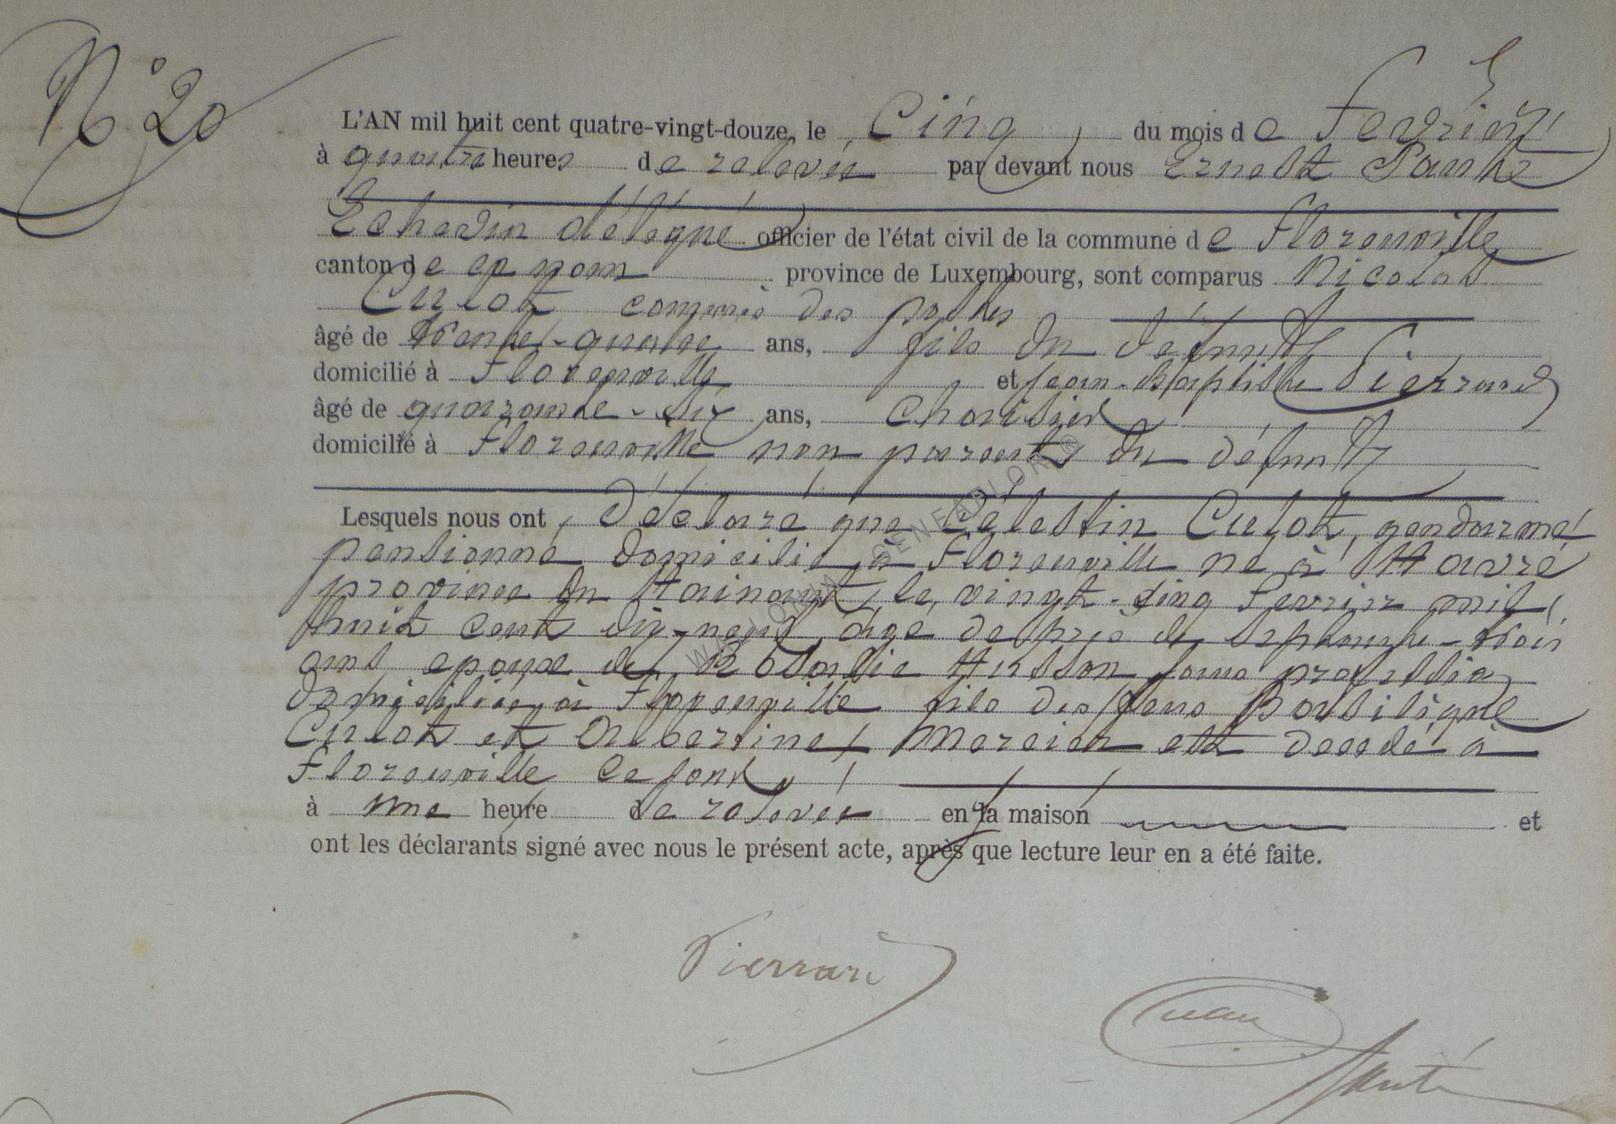 N° 20
L'AN mil huit cent quatre-vingt-douze, le Cinq du mois de Fevrier
à quatre heures de relevée par devant nous Ernest
Echevin délégué officier de l'état civil de la commune de Florenville
canton de ce nom province de Luxembourg, sont comparus Nicolas
Culot commis des postes
âgé de trente-quatre ans, fils du défunt
domicilié à Florenville et Jean-Baptiste Pierrard
âgé de quarante-six ans,
domicilié à Florenville non parent du défunt
Lesquels nous ont déclaré que Célestin Culot, gendarme
pensionné domicilié à Florenville né à Havré
province du Hainaut, le vingt-cinq Fevrier mil
huit cent dix-neuf, âgé de près de septante-trois
ans epoux de Rosalie Husson sans profession
domiciliée à Florenville fils des feus
Culot et Albertine Mercier est décédé à
Florenville ce jour
à une heure de relevée en la maison et
ont les déclarants signé avec nous le présent acte, après que lecture leur en a été faite.
Pierrard